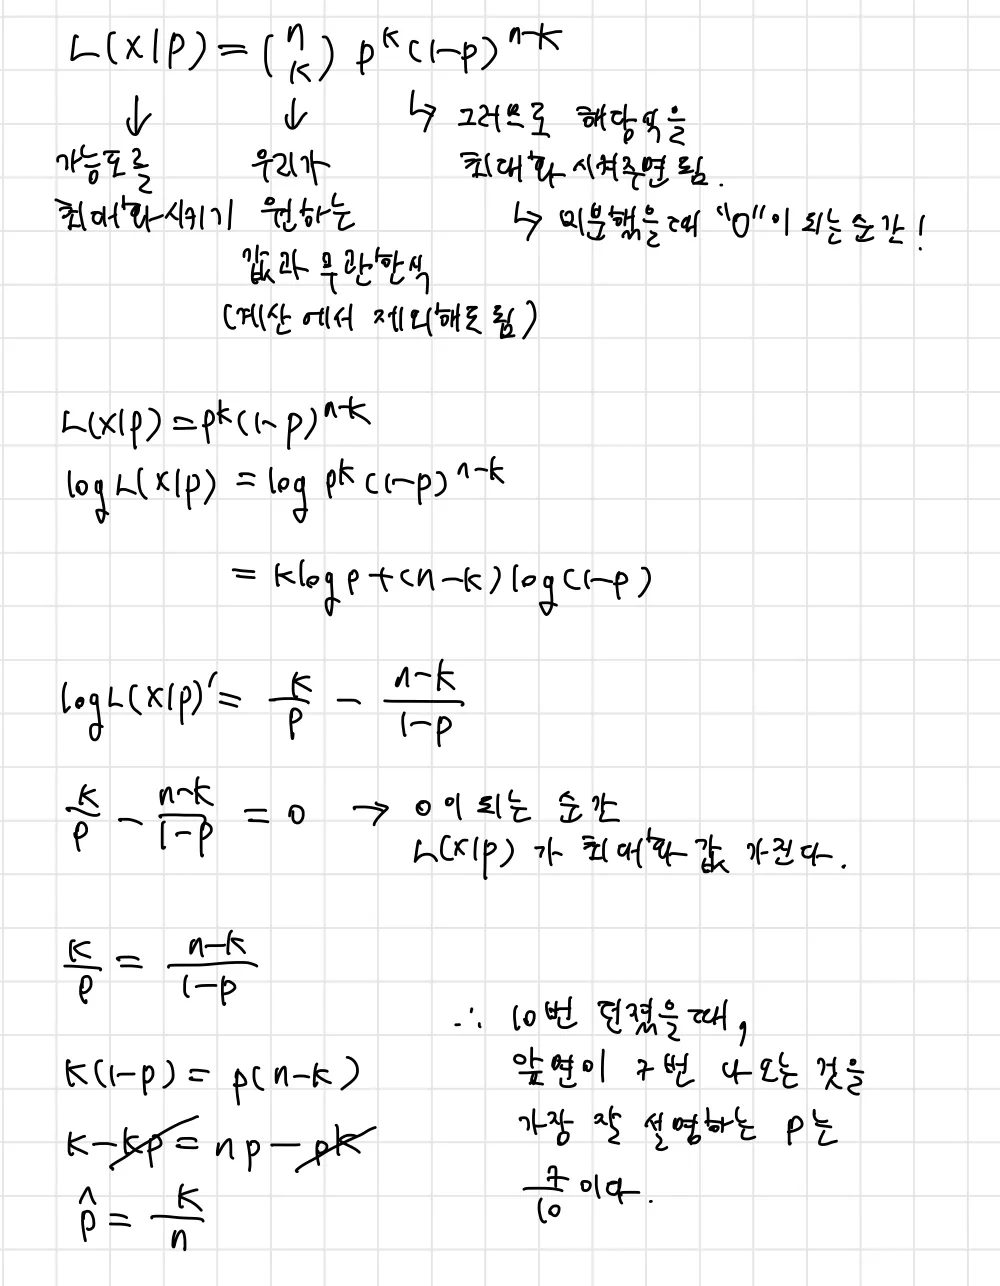 L(X|p) = (n k) p^k (1-p)^{n-k}
↓ ↓ ↳ 그러므로 해당 식을
가능도를 우리가 최대화 시켜주면 됨.
최대화시키기 원하는 ↳ 미분했을 때 "0"이 되는 순간!
값과 무관한 식
(계산에서 제외해도 됨)
L(X|p) = p^k (1-p)^{n-k}
log L(X|p) = log p^k (1-p)^{n-k}
= k log p + (n-k) log (1-p)
log L(X|p)' = k/p - (n-k)/(1-p)
k/p - (n-k)/(1-p) = 0 → 0이 되는 순간
L(X|p)가 최대화 값 가진다.
k/p = (n-k)/(1-p)
k(1-p) = p(n-k)
k - kp = np - pk
p̂ = k/n
∴ 10번 던졌을 때,
앞면이 7번 나오는 것을
가장 잘 설명하는 p는
7/10 이다.